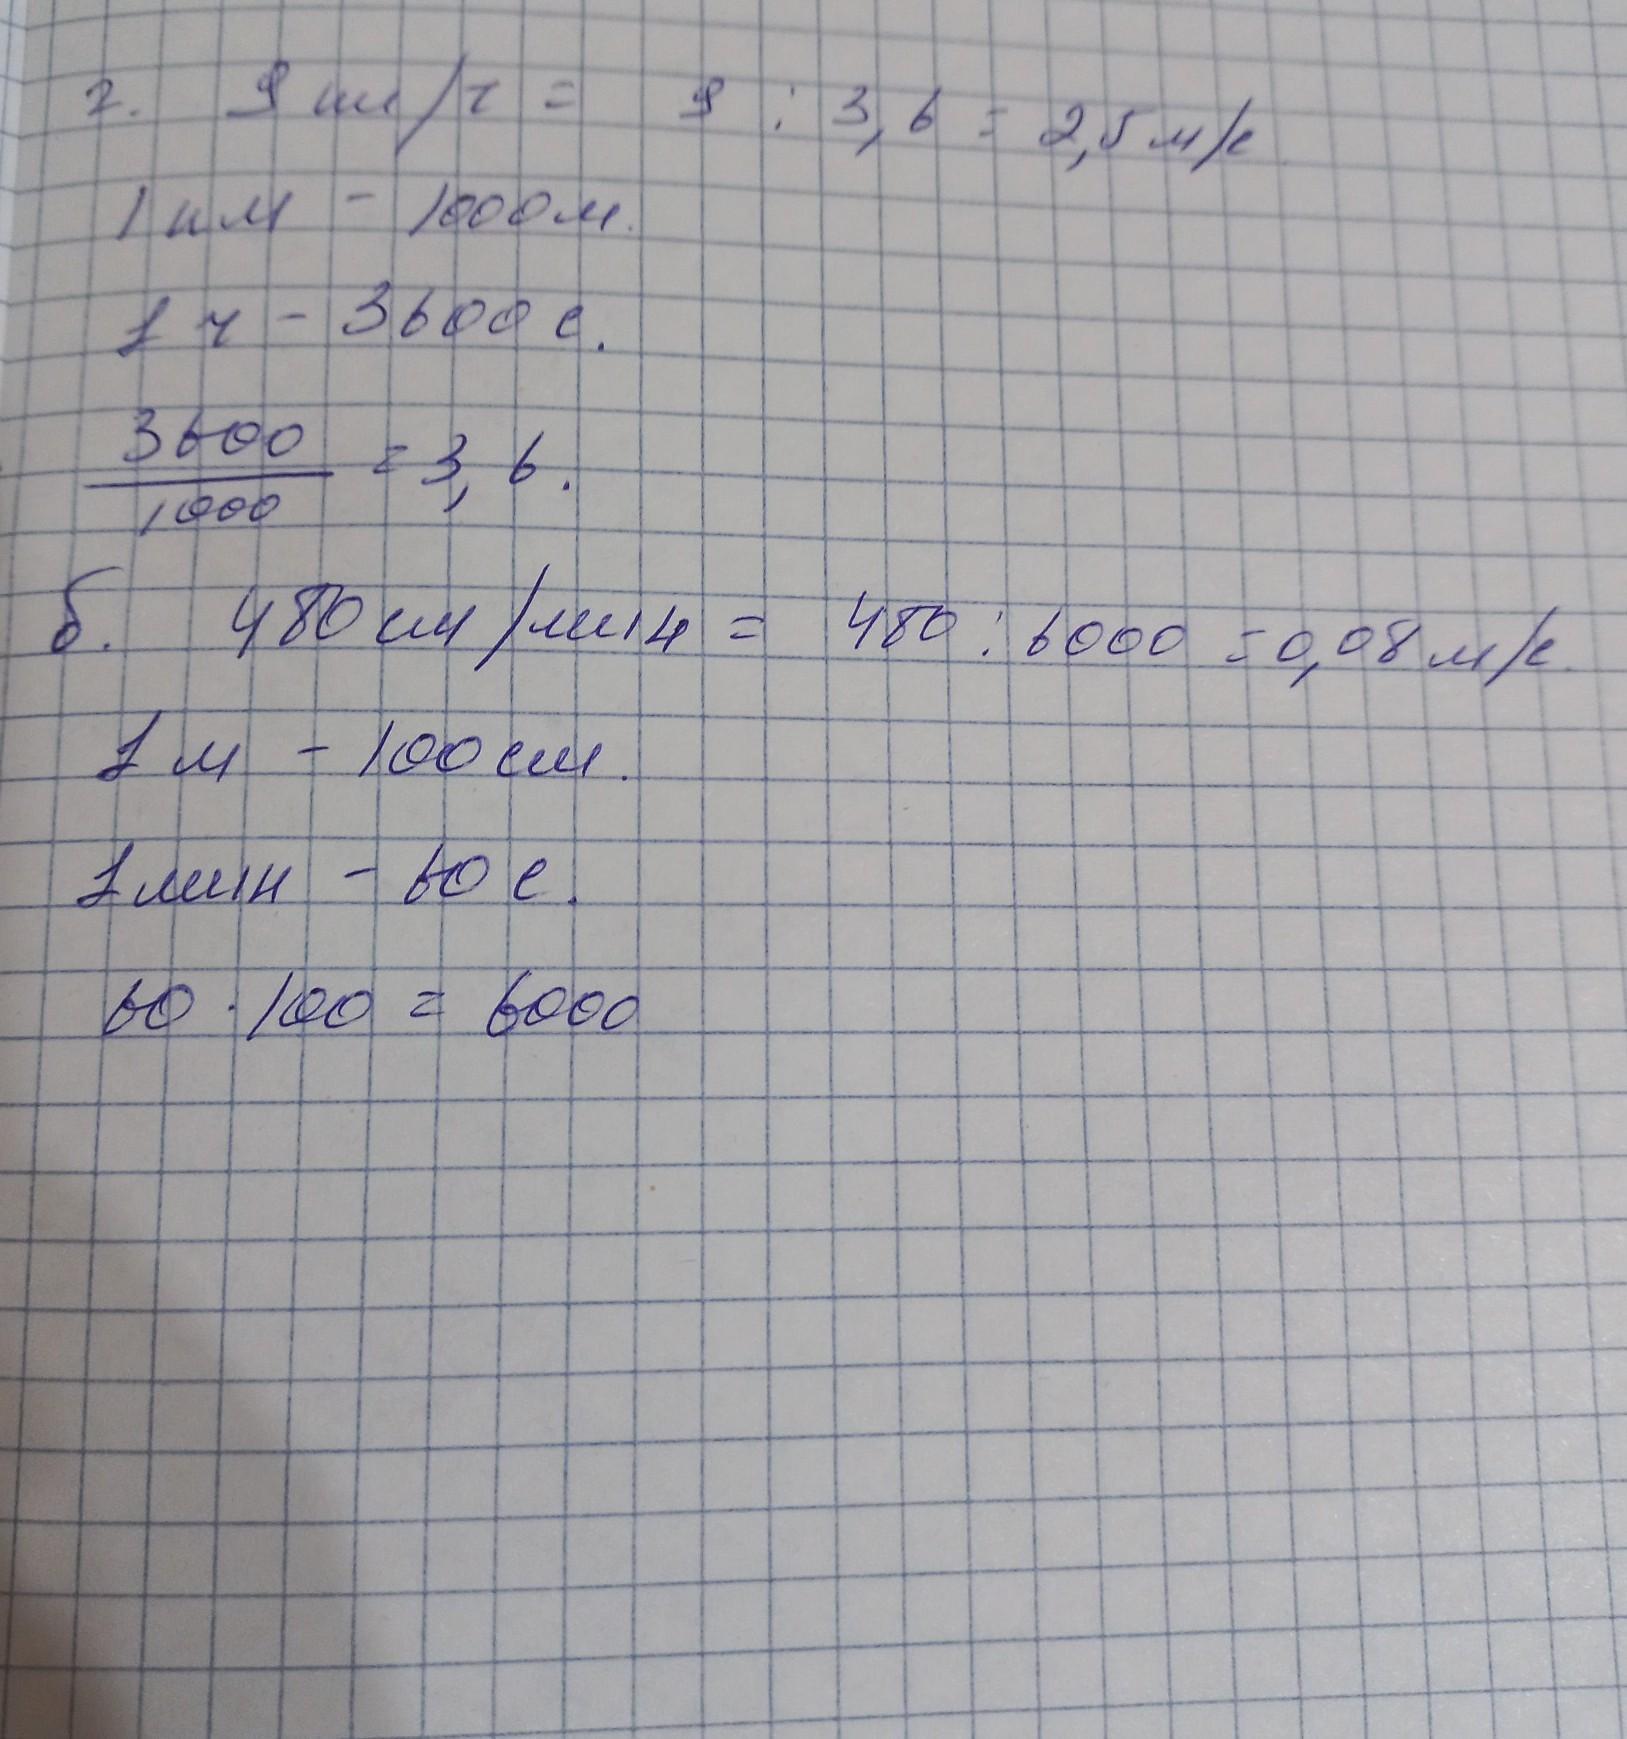 г. 9 км/ч = 9 : 3,6 = 2,5 м/с
1 км - 1000 м.
1 ч - 3600 с.
3600
1000
= 3,6.
б. 480 см/мин = 480 : 6000 = 0,08 м/с.
1 м - 100 см.
1 мин - 60 с.
60 · 100 = 6000